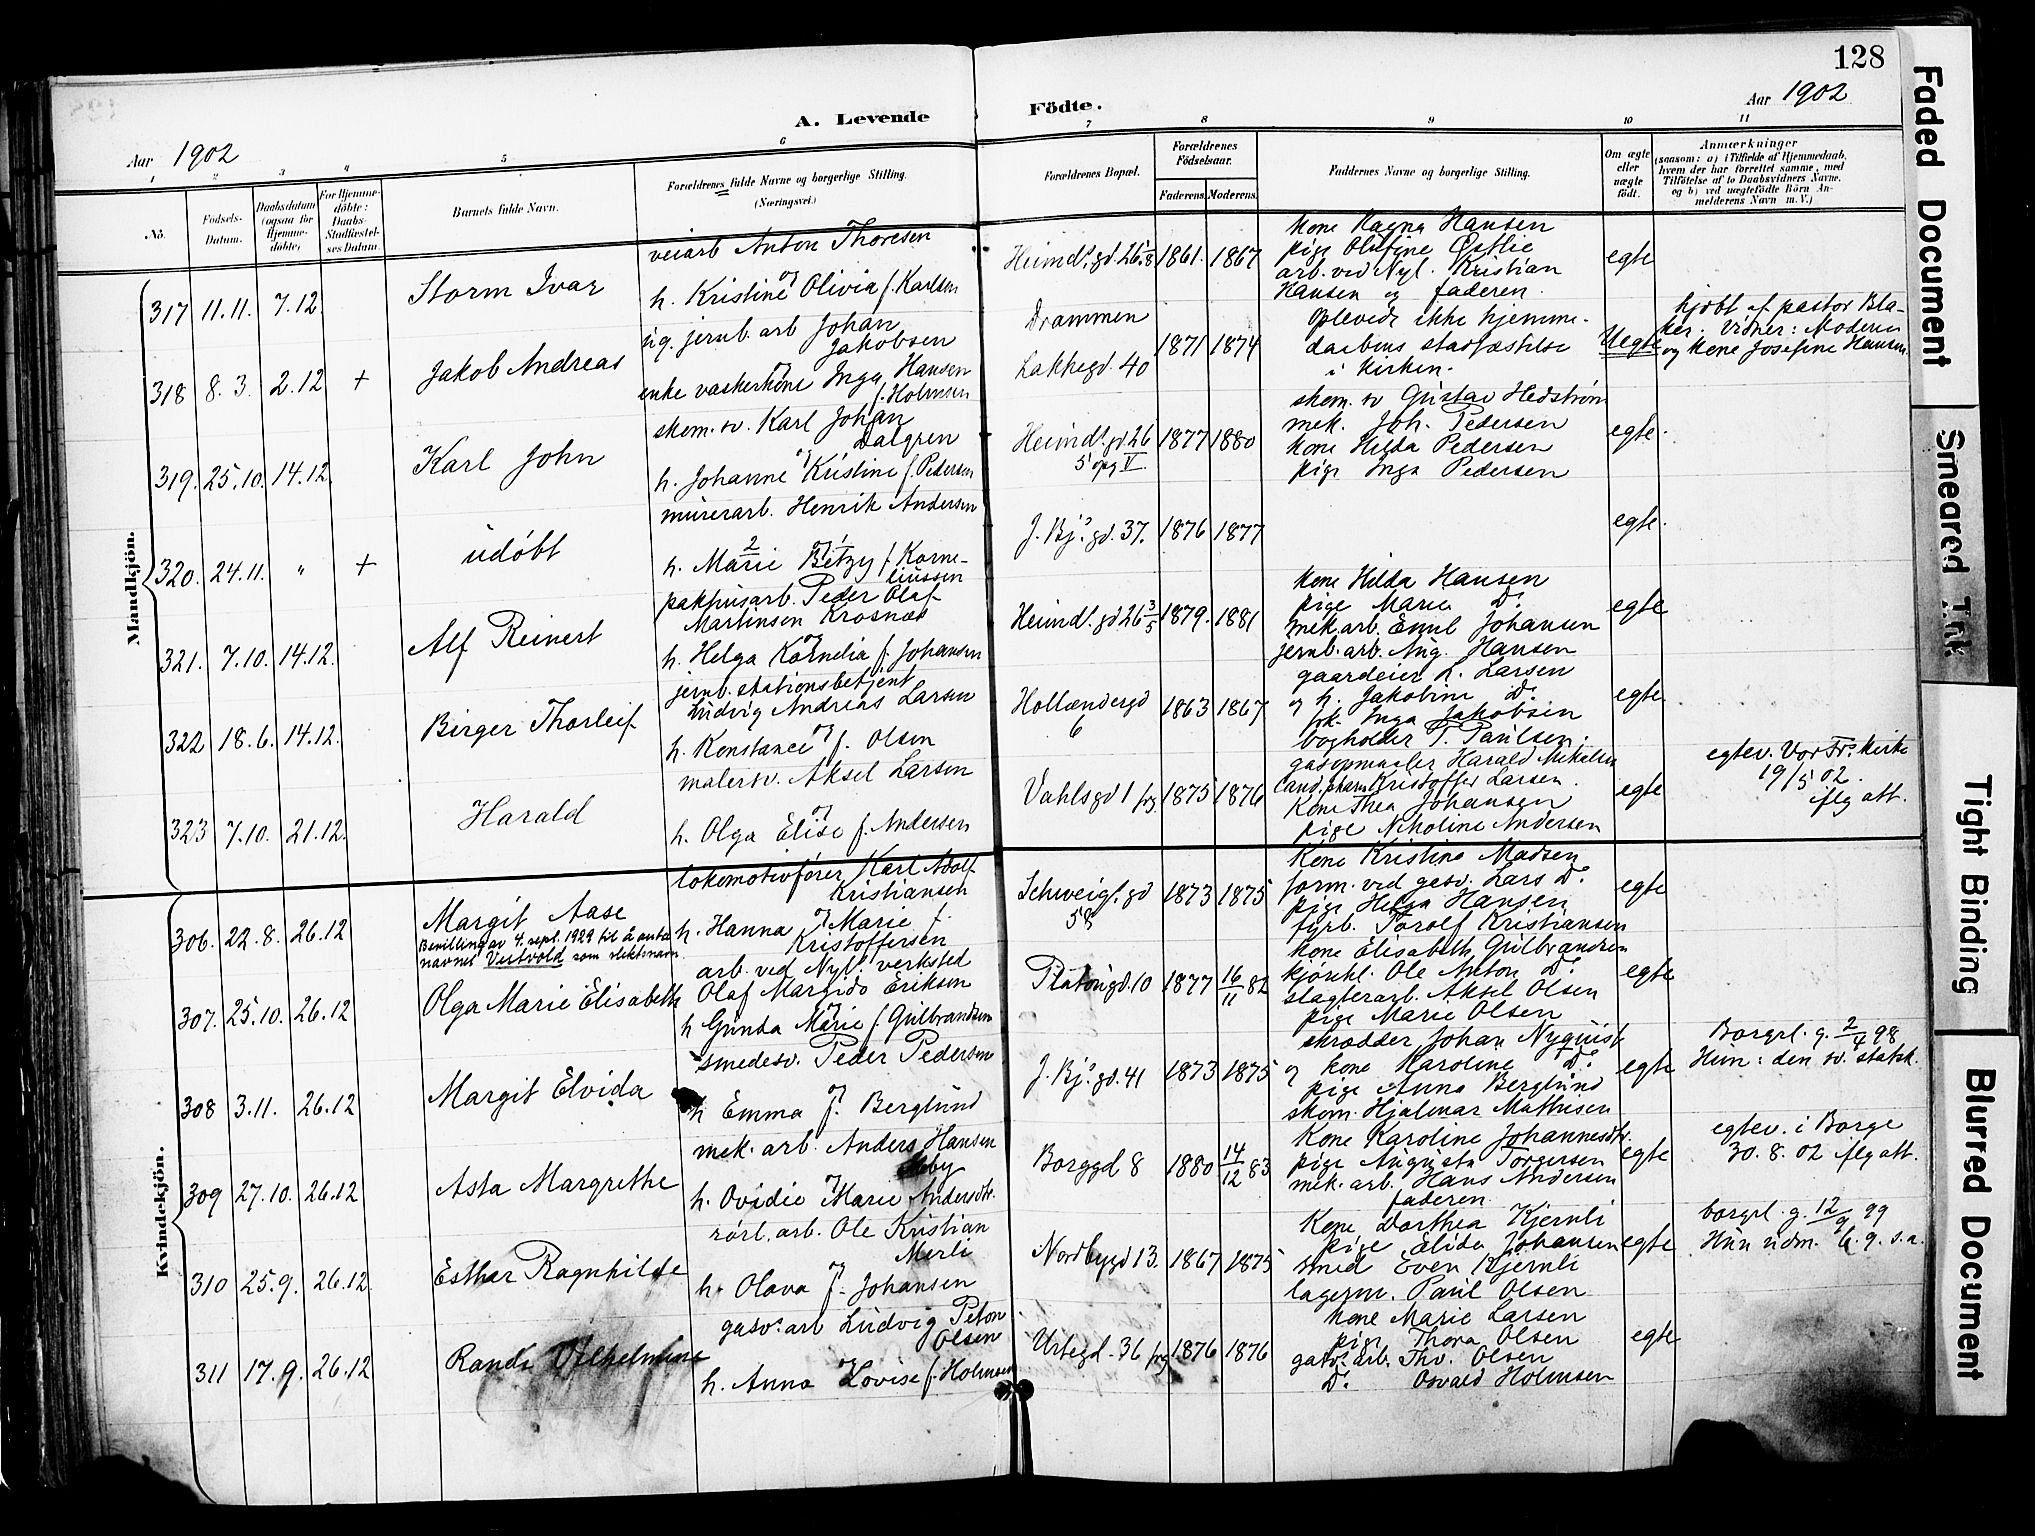 128
A. Levende
Födte.
Aar 1902
Aar 1902
1 2 3 4 5 6 7 8 9 10 11
No.
Födsels-Datum.
Daabsdatum (ogsaa for Hjemme-döbte).
For Hjemme-döbte: Daabs-Stadfæstel-ses Datum.
Barnets fulde Navn.
Forældrenes fulde Navne og borgerlige Stilling.
(Næringsvei.)
Forældrenes Bopæl.
Forældrenes Födselsaar.
Faderens. Moderens.
Faddernes Navne og borgerlige Stilling.
Om ægte eller uægte födt.
Anmærkninger
(saasom: a) i Tilfælde af Hjemmedaab, hvem der har forrettet samme, med Tilföielse af to Daabsvidners Navne, og b) ved uægtefödte Börn An-melderens Navn m. V.)
Mandkjön.
317 11.11. 7.12 Storm Ivar
veiarb Anton Thoresen
og
h. Kristine Olivia f. Karlsen
Heimd. gd. 26 1861. 1867
Kone Ragna Hansen
pige Olufine Østlie
arb. ved Nyl. Kristian
Hansen og faderen.
egte
318 8.3. 2.12 + Jakob Andreas
ug. jernb. arb Johan
Jakobsen
og
enke vaskerkone Inga Hansen
f. Holmsen
Drammen
Lakkegd. 40
1871 1874
Oplevede ikke hjemme-
daabens stadfæstelse
i kirken.
Uegte
hjdbt af pastor Bla-
ker. Vidner: Moderen
og Kone Josefine Hansen
319. 25.10. 14.12. Karl John
skom. sv. Karl Johan
Dalgren
og
h. Johanne Kristine f. Pedersen
Heimd. gd 26
5 opg V
1877 1880
skom. sv Gustav Hedstrøm
mek. Joh. Pedersen
Kone Hilda Pedersen
pige Inga Pedersen
egte.
320. 24.11. " + udöbt
murerarb. Henrik Andersen
og
h. Marie Betzy f. Korne-
liussen
J. Bj.s gd. 37. 1876 1877 egte.
321. 7.10. 14.12. Alf Reinert
pakhusarb. Peder Olaf
Martinsen Krosnæs
og
h. Helga Kornelia f. Johansen
Heimd. gd 26 3/5 1879. 1881
Kone Hilda Hansen
pige Marie Do
mek. arb. Emil Johansen
jernb. arb. Aug. Hansen
egte
322 18.6. 14.12. Birger Thorleif
jernb. stationsbetjent
Ludvig Andreas Larsen
og
h. Konstance f. Olsen
Hollændergd
6
1863 1867
gaardeier L. Larsen
og h. Jakobine Do
frk. Inga Jakobsen
bogholder T. Paulsen.
egte
323 7.10. 21.12. Harald
malersv. Aksel Larsen
og
h. Olga Elise f. Andersen
Vahlsgd 1 1875 1876
gasopmaaler Harald Mikelsen
Cand. pharm Kristoffer Larsen.
Kone Thea Johansen
pige Nikoline Andersen
egte
egtev. Vor Frs. Kirke
19/5 02.
iflg att.
Kvindekjön.
306. 22.8. 26.12 Margit Aase
Bevilling av 4. sept. 1929 til å anta
navnet Vestvold som slektsnavn
lokomotivfører Karl Adolf
Kristiansen
og
h. Hanna Marie f.
Kristoffersen
Schweig. gd
58
1873 1875
Kone Kristine Madsen
form. ved gasv. Lars Do
pige Helga Hansen
fyrb. Torolf Kristiansen
egte
307. 25.10. 26.12 Olga Marie Elisabeth
arb. ved Nyl. verksted
Olaf Margido Eriksen
og
h Gunda Marie f. Gulbrandsen
Platousgd. 10 1877 16/11 82
Kone Elisabeth Gulbrandsen
kjörekl. Ole Anton Do
slagterarb. Aksel Olsen
pige Marie Olsen
egte
308 3.11. 26.12 Margit Elvida
smedesv. Peder Pedersen
og
h Emma f. Berglund
J. Bj.s gd. 41 1873 1875
skrædder Johan Nyquist
og kone Karoline Do
pige Anna Berglund
skom. Hjalmar Mathisen
egte
Borgrl. g. 2/4 98
Hun: den sv. statsk.
309 27.10. 26.12 Asta Margrethe
mek. arb. Anders Hansen
og
h. Ovidie Marie Andersdtr.
Borggd 8 1880 14/12 83
Kone Karoline Johannesdtr.
pige Augusta Torgersen
mek. arb. Hans Andersen
faderen.
egte
egtev. i Borge
30.8.02 iflg att.
310 25.9. 26.12 Esther Ragnhilde
rörl. arb. Ole Kristian
Merli
og
h. Olava f. Johansen
Nordbygd 13. 1867 1875
Kone Dorthea Kjernli
pige Elida Johansen
smed Even Kjernli
lagerm. Paul Olsen
egte
borgrl. g. 12/9 99
Hun udm.
311 17.9. 26.12 Randi Vilhelmine
gasv. arb Ludvig Peton
Olsen
og
h. Anna Lovise f. Holmsen
Urtegd. 36 1876 1876
Kone Marie Larsen
pige Thora Olsen
gasv. arb. Thv. Olsen
Do Osvald Holmsen
egte
Faded Document
Smeared Ink
Tight Binding
Blurred Document